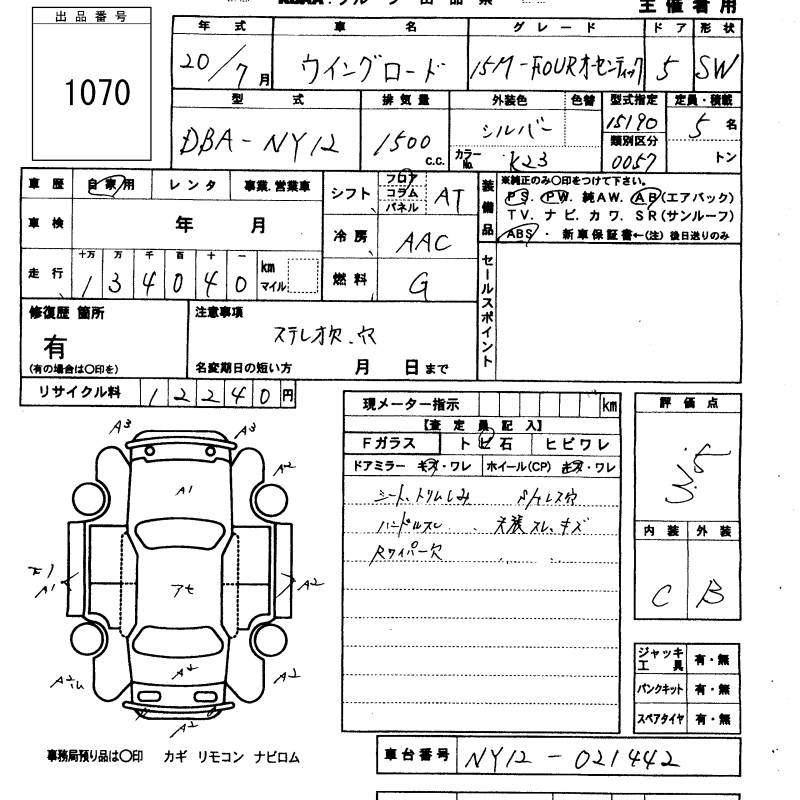 主催者用
出品番号
1070
年式 車名 グレード ドア 形状
20/7月 ウイングロード 15M-FOURオーセンティック 5 SW
型式 排気量 外装色 色替 型式指定 定員・積載
DBA-NY12 1500c.c. シルバー 15190 5名
カラーNo. K23 類別区分 0057 トン
車歴 自家用 レンタ 事業.営業車
シフト フロア コラム パネル AT
装備品 ※純正のみ〇印をつけて下さい。
PS. PW. 純AW. AB(エアバック)
TV. ナビ. カワ. SR(サンルーフ)
ABS・新車保証書←(注) 後日送りのみ
車検 年 月
冷房 AAC
走行 十万 万 千 百 十 一
134040 km マイル
燃料 G
セールスポイント
修復歴 箇所
有
(有の場合は〇印を)
注意事項
ステレオ欠.穴
名変期日の短い方 月 日まで
リサイクル料 12240円
現メーター指示 km
【査定員記入】
Fガラス トビ石 ヒビワレ
ドアミラー キズ・ワレ ホイール(CP) キズ・ワレ
シート、トリムしみ
ハンドルスレ 内装スレ、キズ
Rワイパー欠
評価点
3.5
内装 外装
C B
A3 A3
A2
A1
アセ
A1 A2
A2
A2 A2
A2
ジャッキ工具 有・無
パンクキット 有・無
スペアタイヤ 有・無
事務局預り品は〇印 カギ リモコン ナビロム
車台番号 NY12-021442